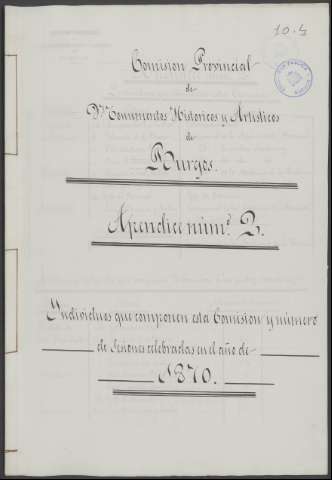 10-4
Comision Provincial
de
Monumentos Históricos y Artísticos
de
Burgos.
Apendice núm.º 2.
Individuos que componen esta Comision y número
de sesiones celebradas en el año de
1870.